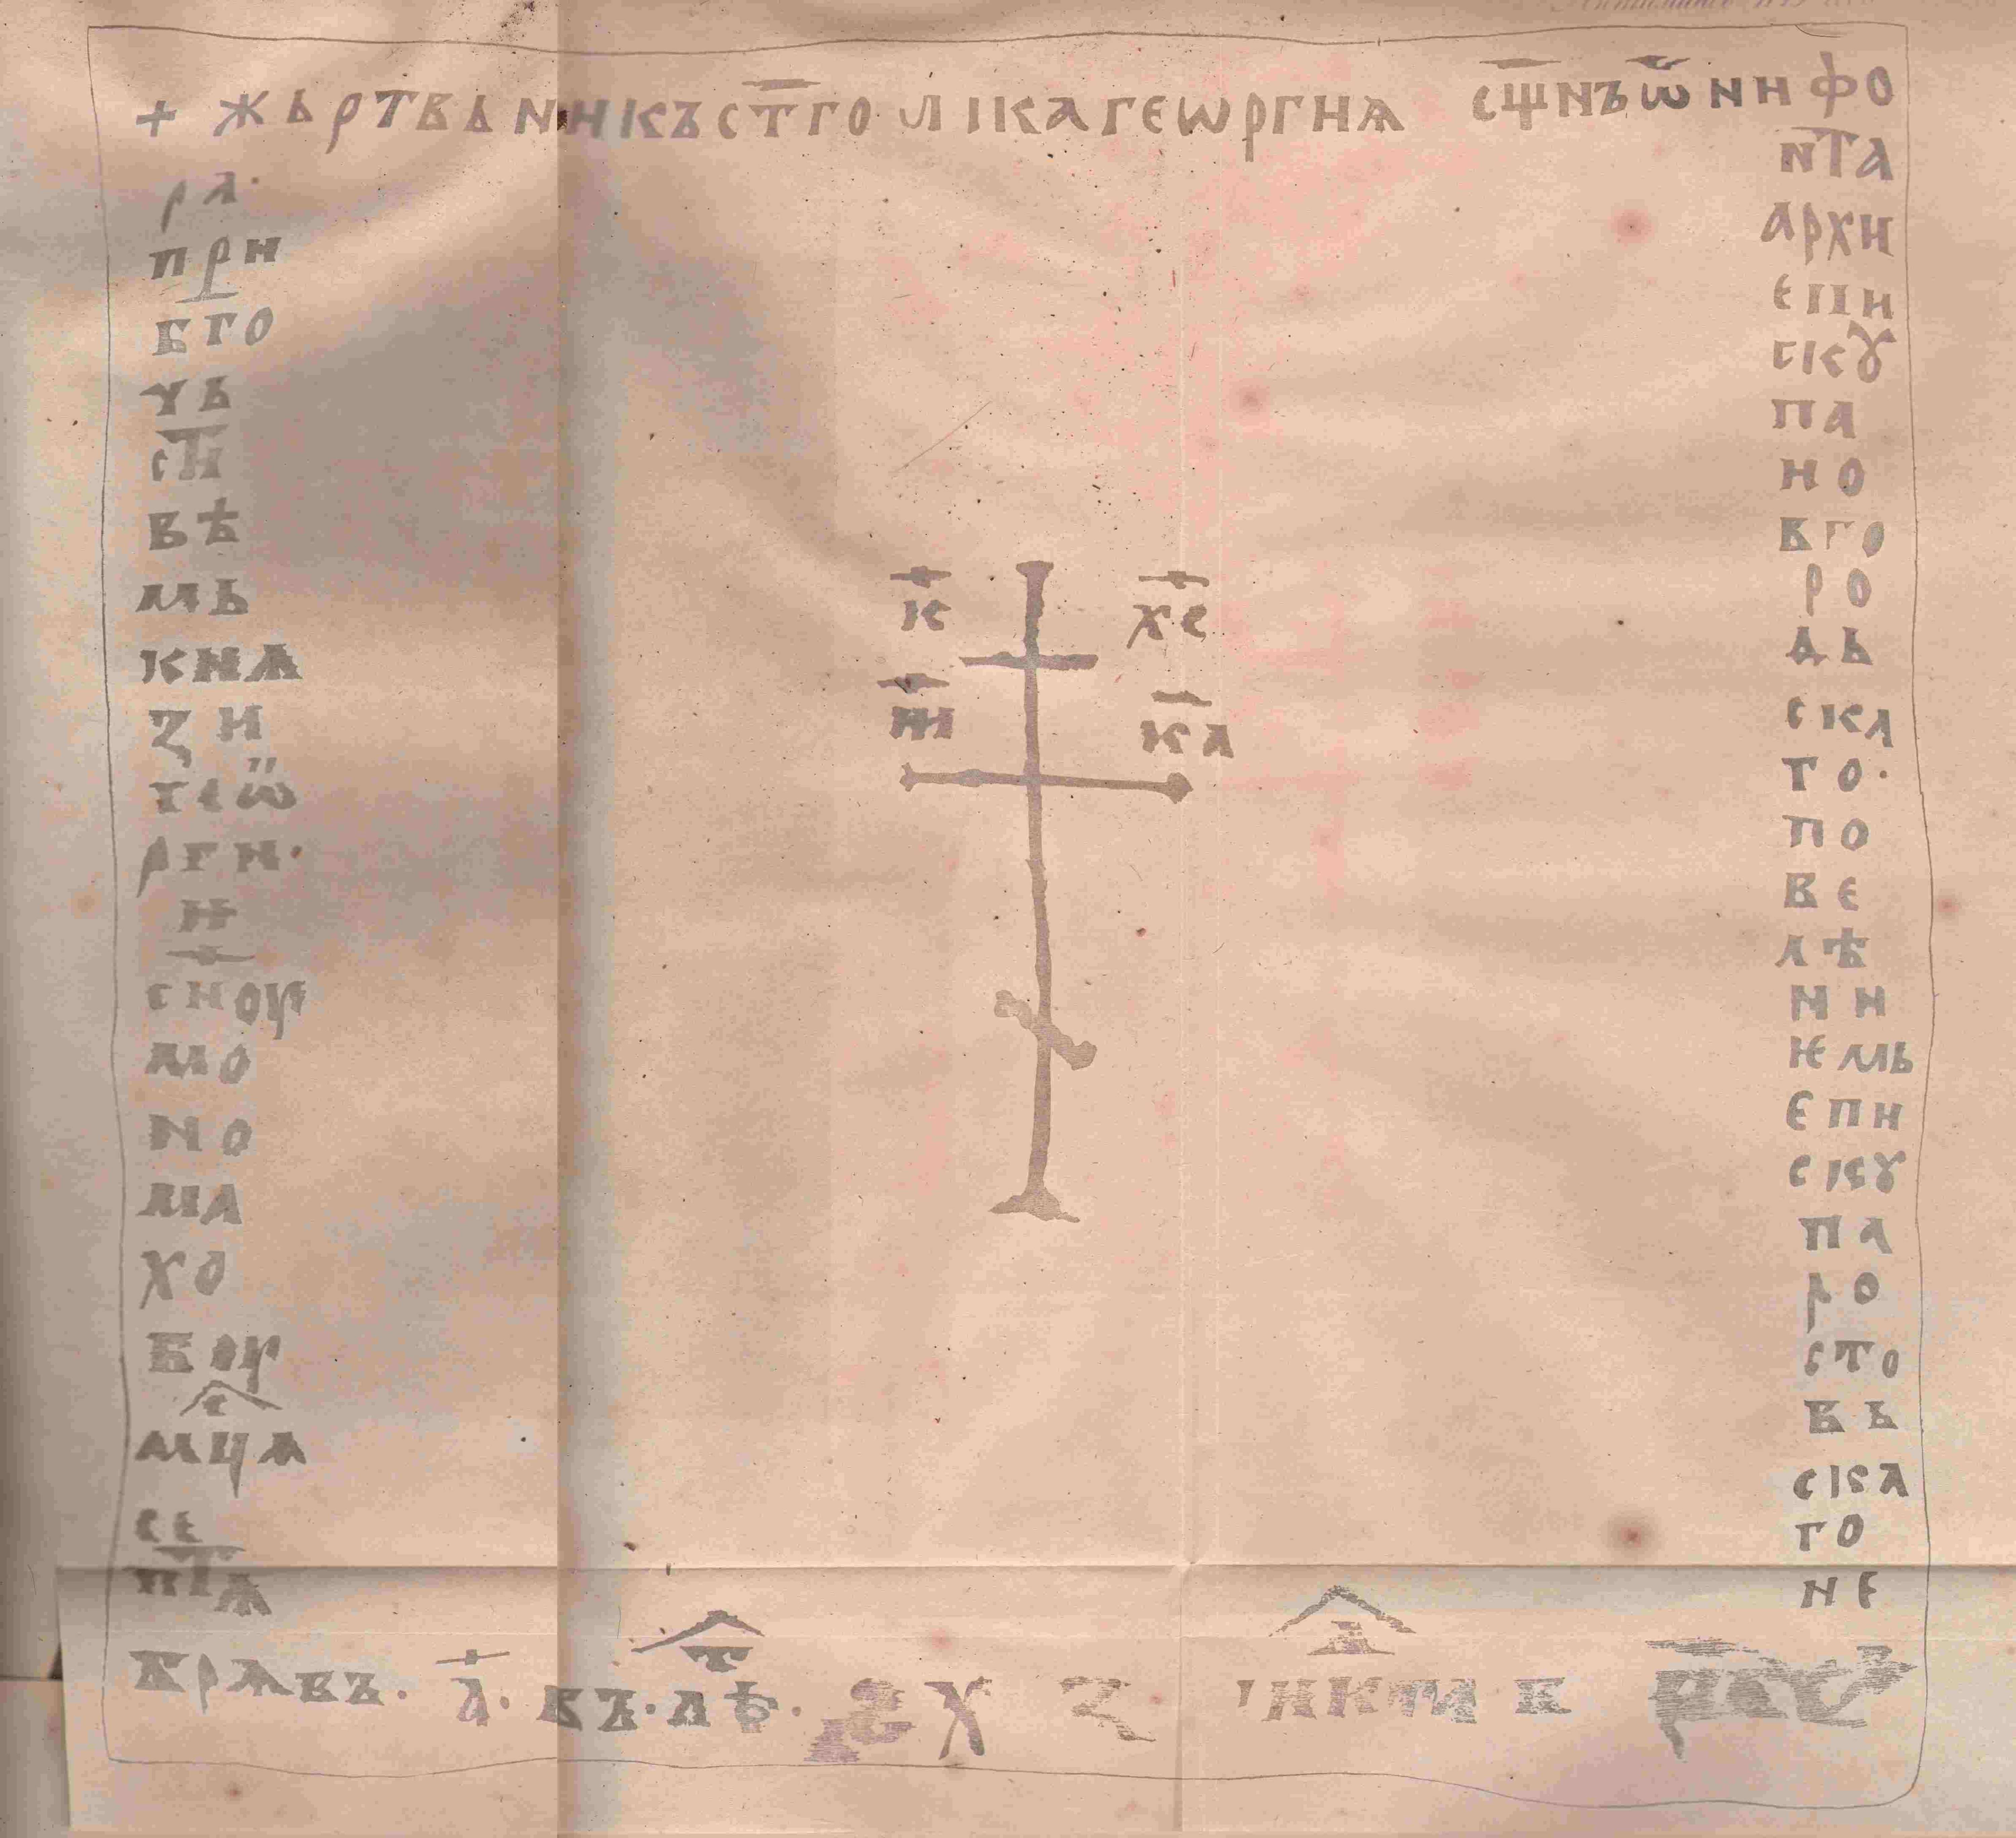 + ЖЬРТВЬНИКЪ СТ҃ГО М҃КА ГЕѠРГИꙖ СЩ҃НЪ Ѿ НИФО
Н҃ТА
АРХИ
ЕПИ
СКꙊ
ПА
НО
ВГО
РО
ДЬ
СКА
ГО·
ПО
ВЕ
ЛѢ
НИ
ѤМЬ
ЕПИ
СКꙊ
ПА
РО
СТО
ВЬ
СКА
ГО
НЕ
РА·
ПРИ
БГО
ЧЬ
СТИ
ВѢ
МЬ
КНѦ
ЗИ
ГЕѠ
РГИ·
И
С҃НОУ
МО
НО
МА
ХО
ВОУ
МЦ҇Ѧ
СЕ
ПТѦ
БРѦ ВЪ· А҃· ВЪ· ЛѢТ·
І҃К Х҃С
Н҃И К҃А